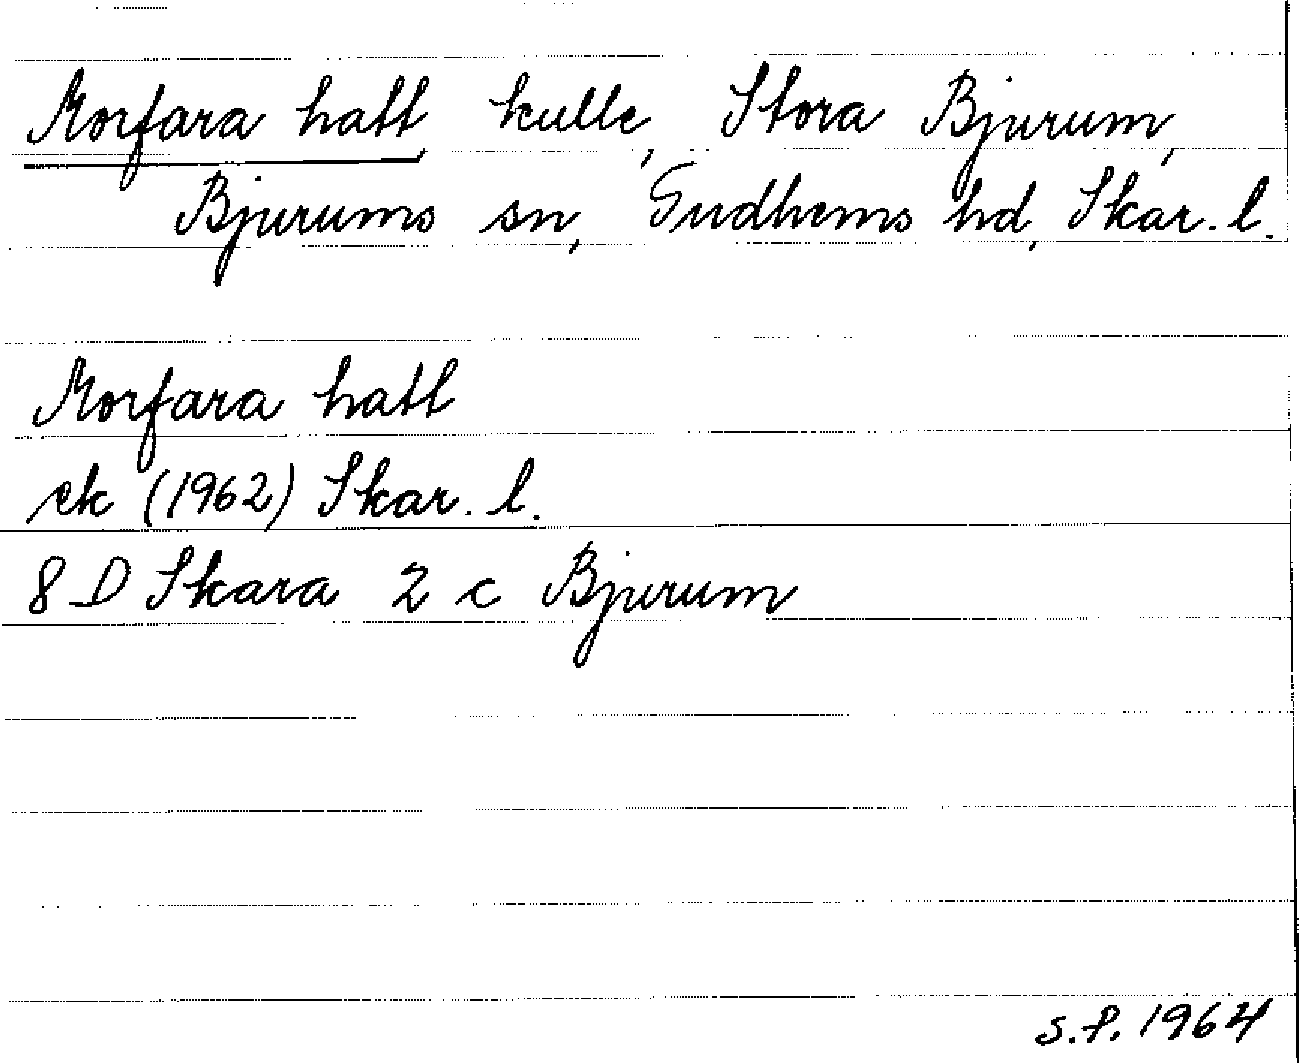 Morfara hatt, kulle, Stora Bjurum,
Bjurums sn, Gudhems hd, Skar. l.
Morfara hatt
ek (1962) Skar. l.
8 D Skara 2 c Bjurum
S.P. 1964